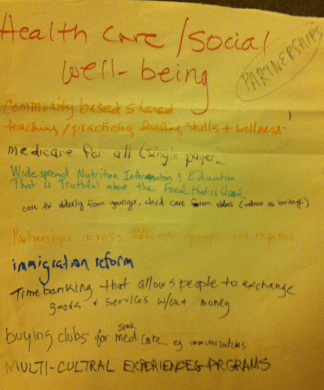 Health care / social
well-being
PARTNERSHIPS
Community based shared
teaching / practicing healing skills + wellness
medicare for all (single payer)
Widespread Nutrition Information & Education
That is Truthful about the Food that is
care for elderly from younger, child care from elders
Partnerships across groups and regions
immigration reform
Timebanking that allows people to exchange
goods & services w/out money
buying clubs for some med care eg immunizations
MULTI-CULTRAL EXPERIENCES PROGRAMS